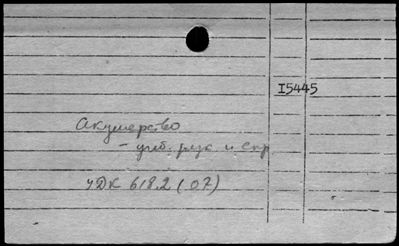 I5445
Акушерство
- учеб. рук. и спр
УДК 618.2 (07)